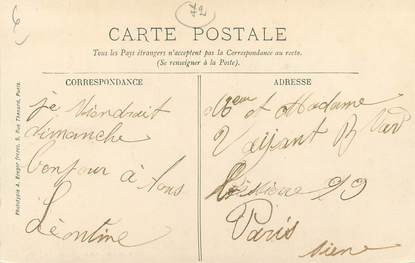 72
CARTE POSTALE
Tous les Pays étrangers n'acceptent pas la Correspondance au recto.
(Se renseigner à la Poste).
CORRESPONDANCE
je viendrait
dimanche
bonjour à tous
Léontine
ADRESSE
et Madame
Vaijant
Paris
Phototypie A. Berger frères, 9, Rue Thénard, Paris.